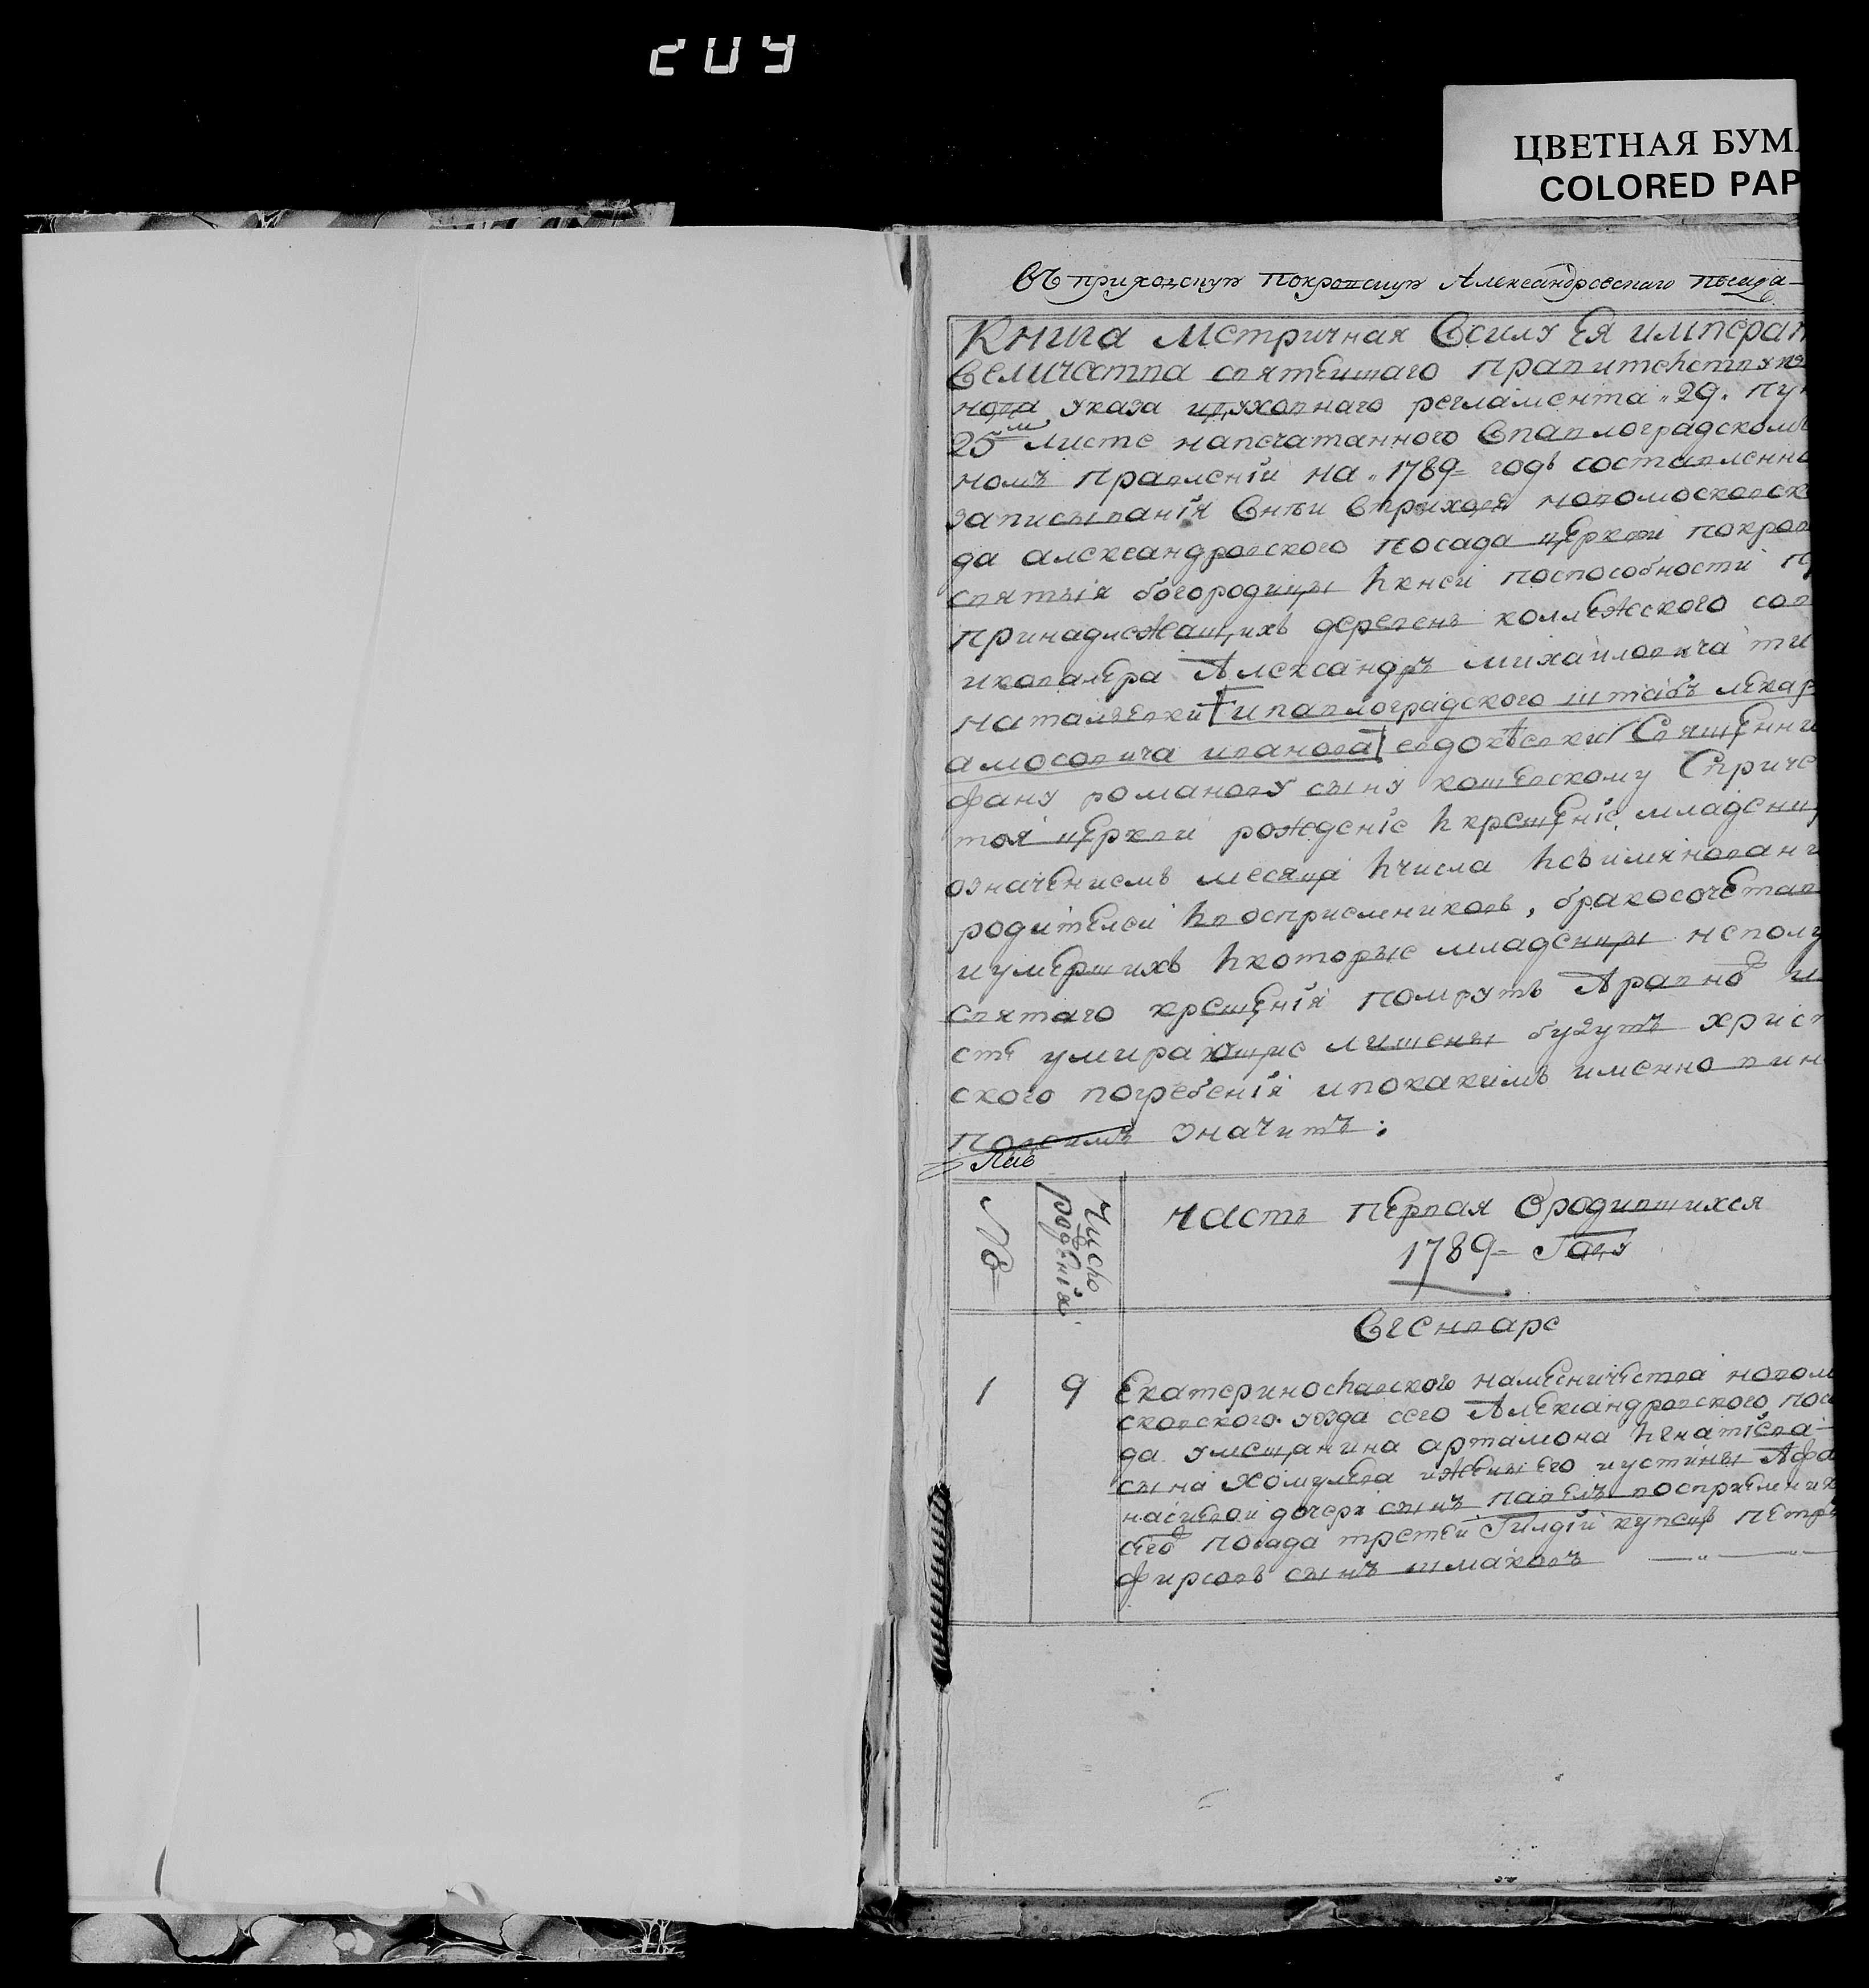 209
ЦВЕТНАЯ БУМ
COLORED PAP
Въ приходскую Покровскую Александровскаго посада
Книга Метричная Всилу Ея импера
Величества святеишаго правителствую
25 листе напечатанного Впавлоградском
номъ правлений на "1789= годъ составленно
записывания Внъи Вприходе новомосковск
да александровского посада церкви покров
святыя богородицы икнеи поспособности
принадлежащихъ деревенъ коллежского сов
икавалера Александръ михаиловича
наталъевки и павлоградского штабъ лекар
амосовича иванова евдокъевки Священни
фану романову сыну кошевскому Спричс
тоя церкви рожденіе икрещеніе младенц
означениемъ месяца ичисла исъимяновани
родителеи ивосприемниковъ, бракосочетав
иумершихъ икоторые младенцы неполу
святаго крещенія помрутъ Аравно
умирающие лишены будутъ христ
ского погребенія ипокакимъ именно вин
значитъ:
№
Число
родениіа
частъ первая Ородившихся
1789= Году
Вгенваре
1 9 Екатеринославского намесничества новом
сковского уезда сего Александровского поса
да умещанина артамона игнатіева
сына Хомулева ижены его иустины Афа
насиевой дочери сынъ павелъ восприемник
сего посада третеи Гилдіи купецъ петръ
фирсовъ сынъ шмаковъ